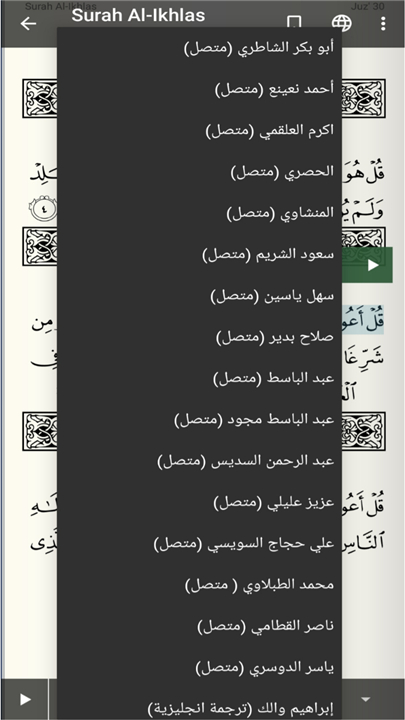 Surah Al-Ikhlas
Juz' 30
Surah Al-Ikhlas
أبو بكر الشاطري (متصل)
أحمد نعينع (متصل)
اكرم العلقمي (متصل)
الحصري (متصل)
المنشاوي (متصل)
سعود الشريم (متصل)
سهل ياسين (متصل)
صلاح بدير (متصل)
عبد الباسط (متصل)
عبد الباسط مجود (متصل)
عبد الرحمن السديس (متصل)
عزيز عليلي (متصل)
علي حجاج السويسي (متصل)
محمد الطبلاوي ( متصل)
ناصر القطامي (متصل)
ياسر الدوسري (متصل)
إبراهيم والك (ترجمة انجليزية)
قُلْ هُوَ
وَلَمْ
٤
قُلْ
مِن
شَرِّ
فِي
قُلْ
النَّاسِ